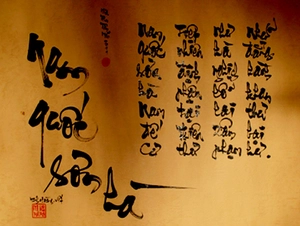 Nam
quốc
sơn hà
Nam quốc sơn hà Nam đế cư
Tiệt nhiên định phận tại thiên thư
Như hà nghịch lỗ lai xâm phạm
Nhữ đẳng hành khan thủ bại hư